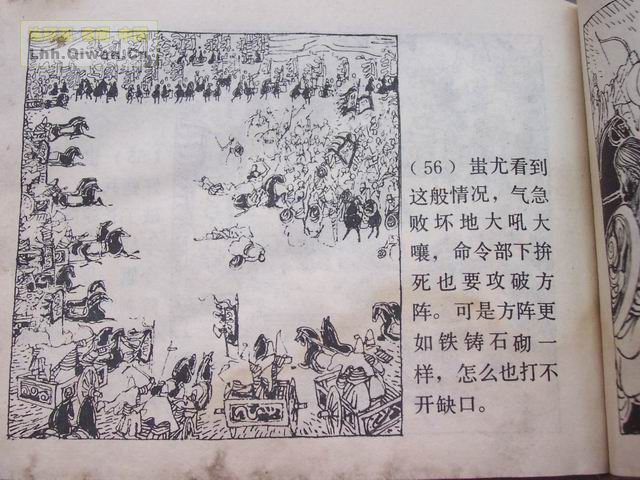 Lhh.Qiwan.Cn
(56) 蚩尤看到
这般情况，气急
败坏地大吼大
嚷，命令部下拚
死也要攻破方
阵。可是方阵更
如铁铸石砌一
样，怎么也打不
开缺口。